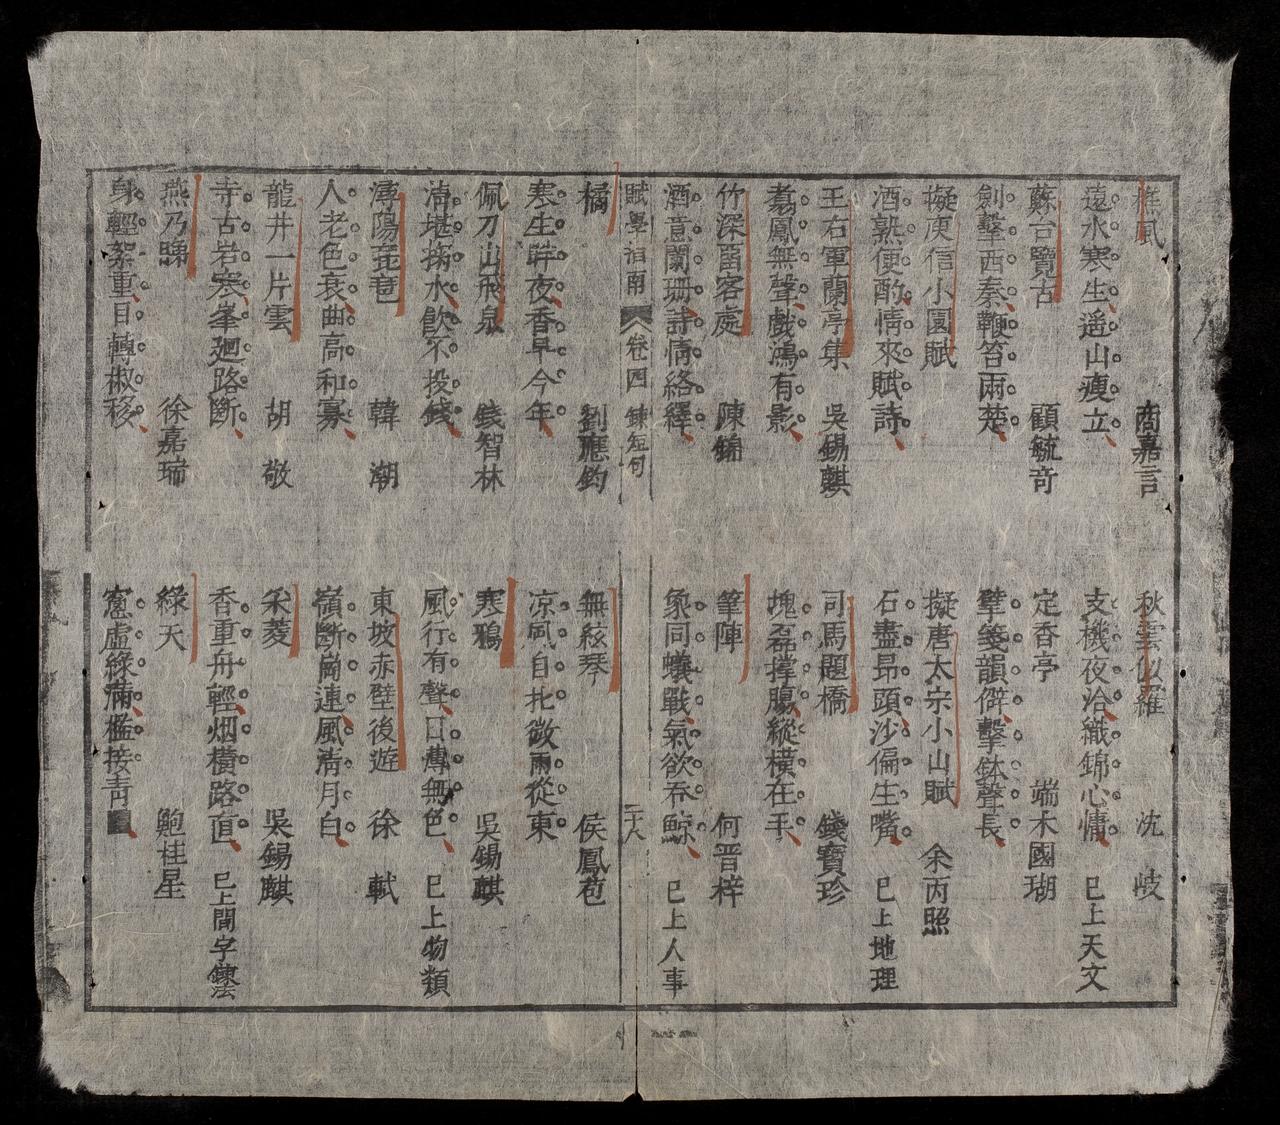 樵風　商嘉言　秋雲似羅　沈岐
遠水寒生遥山瘦立　支機夜洽織錦心慵　已上天文
蘇台覽古　顧毓奇　定香亭　端木國瑚
劍擊西秦鞭笞兩楚　擘箋韻僻擊鉢聲長
擬庾信小園賦　擬唐太宗小山賦　余丙照
酒熟便酌情來賦詩　石盡昂頭沙偏生嘴　已上地理
王右軍蘭亭集　吳錫麒　司馬題橋　錢寶珍
翥鳳無聲戲鴻有影　塊磊撐腸縱橫在手
竹深畱客處　陳錦　筆陣　何晋梓
酒意闌珊詩情絡繹　象同蟻戰氣欲吞鯨　已上人事
賦學指南　卷四　鍊短句　二十八
橘　劉應鈞　無絃琴　侯鳳苞
寒生昨夜香早今年　凉風自北微雨從東
佩刀出飛泉　錢智林　寒鴉　吳錫麒
清堪掬水飲不投錢　風行有聲日薄無色　已上物類
潯陽琵琶　韓潮　東坡赤壁後遊　徐軾
人老色衰曲高和寡　嶺斷崗連風清月白
龍井一片雲　胡敬　采菱　吳錫麒
寺古岩寒峯廻路斷　香重舟輕烟橫路直　已上間字鍊法
燕乃睇　徐嘉瑞　綠天　鮑桂星
身輕絮重目轉椒移　窗虛綠滿檻接青